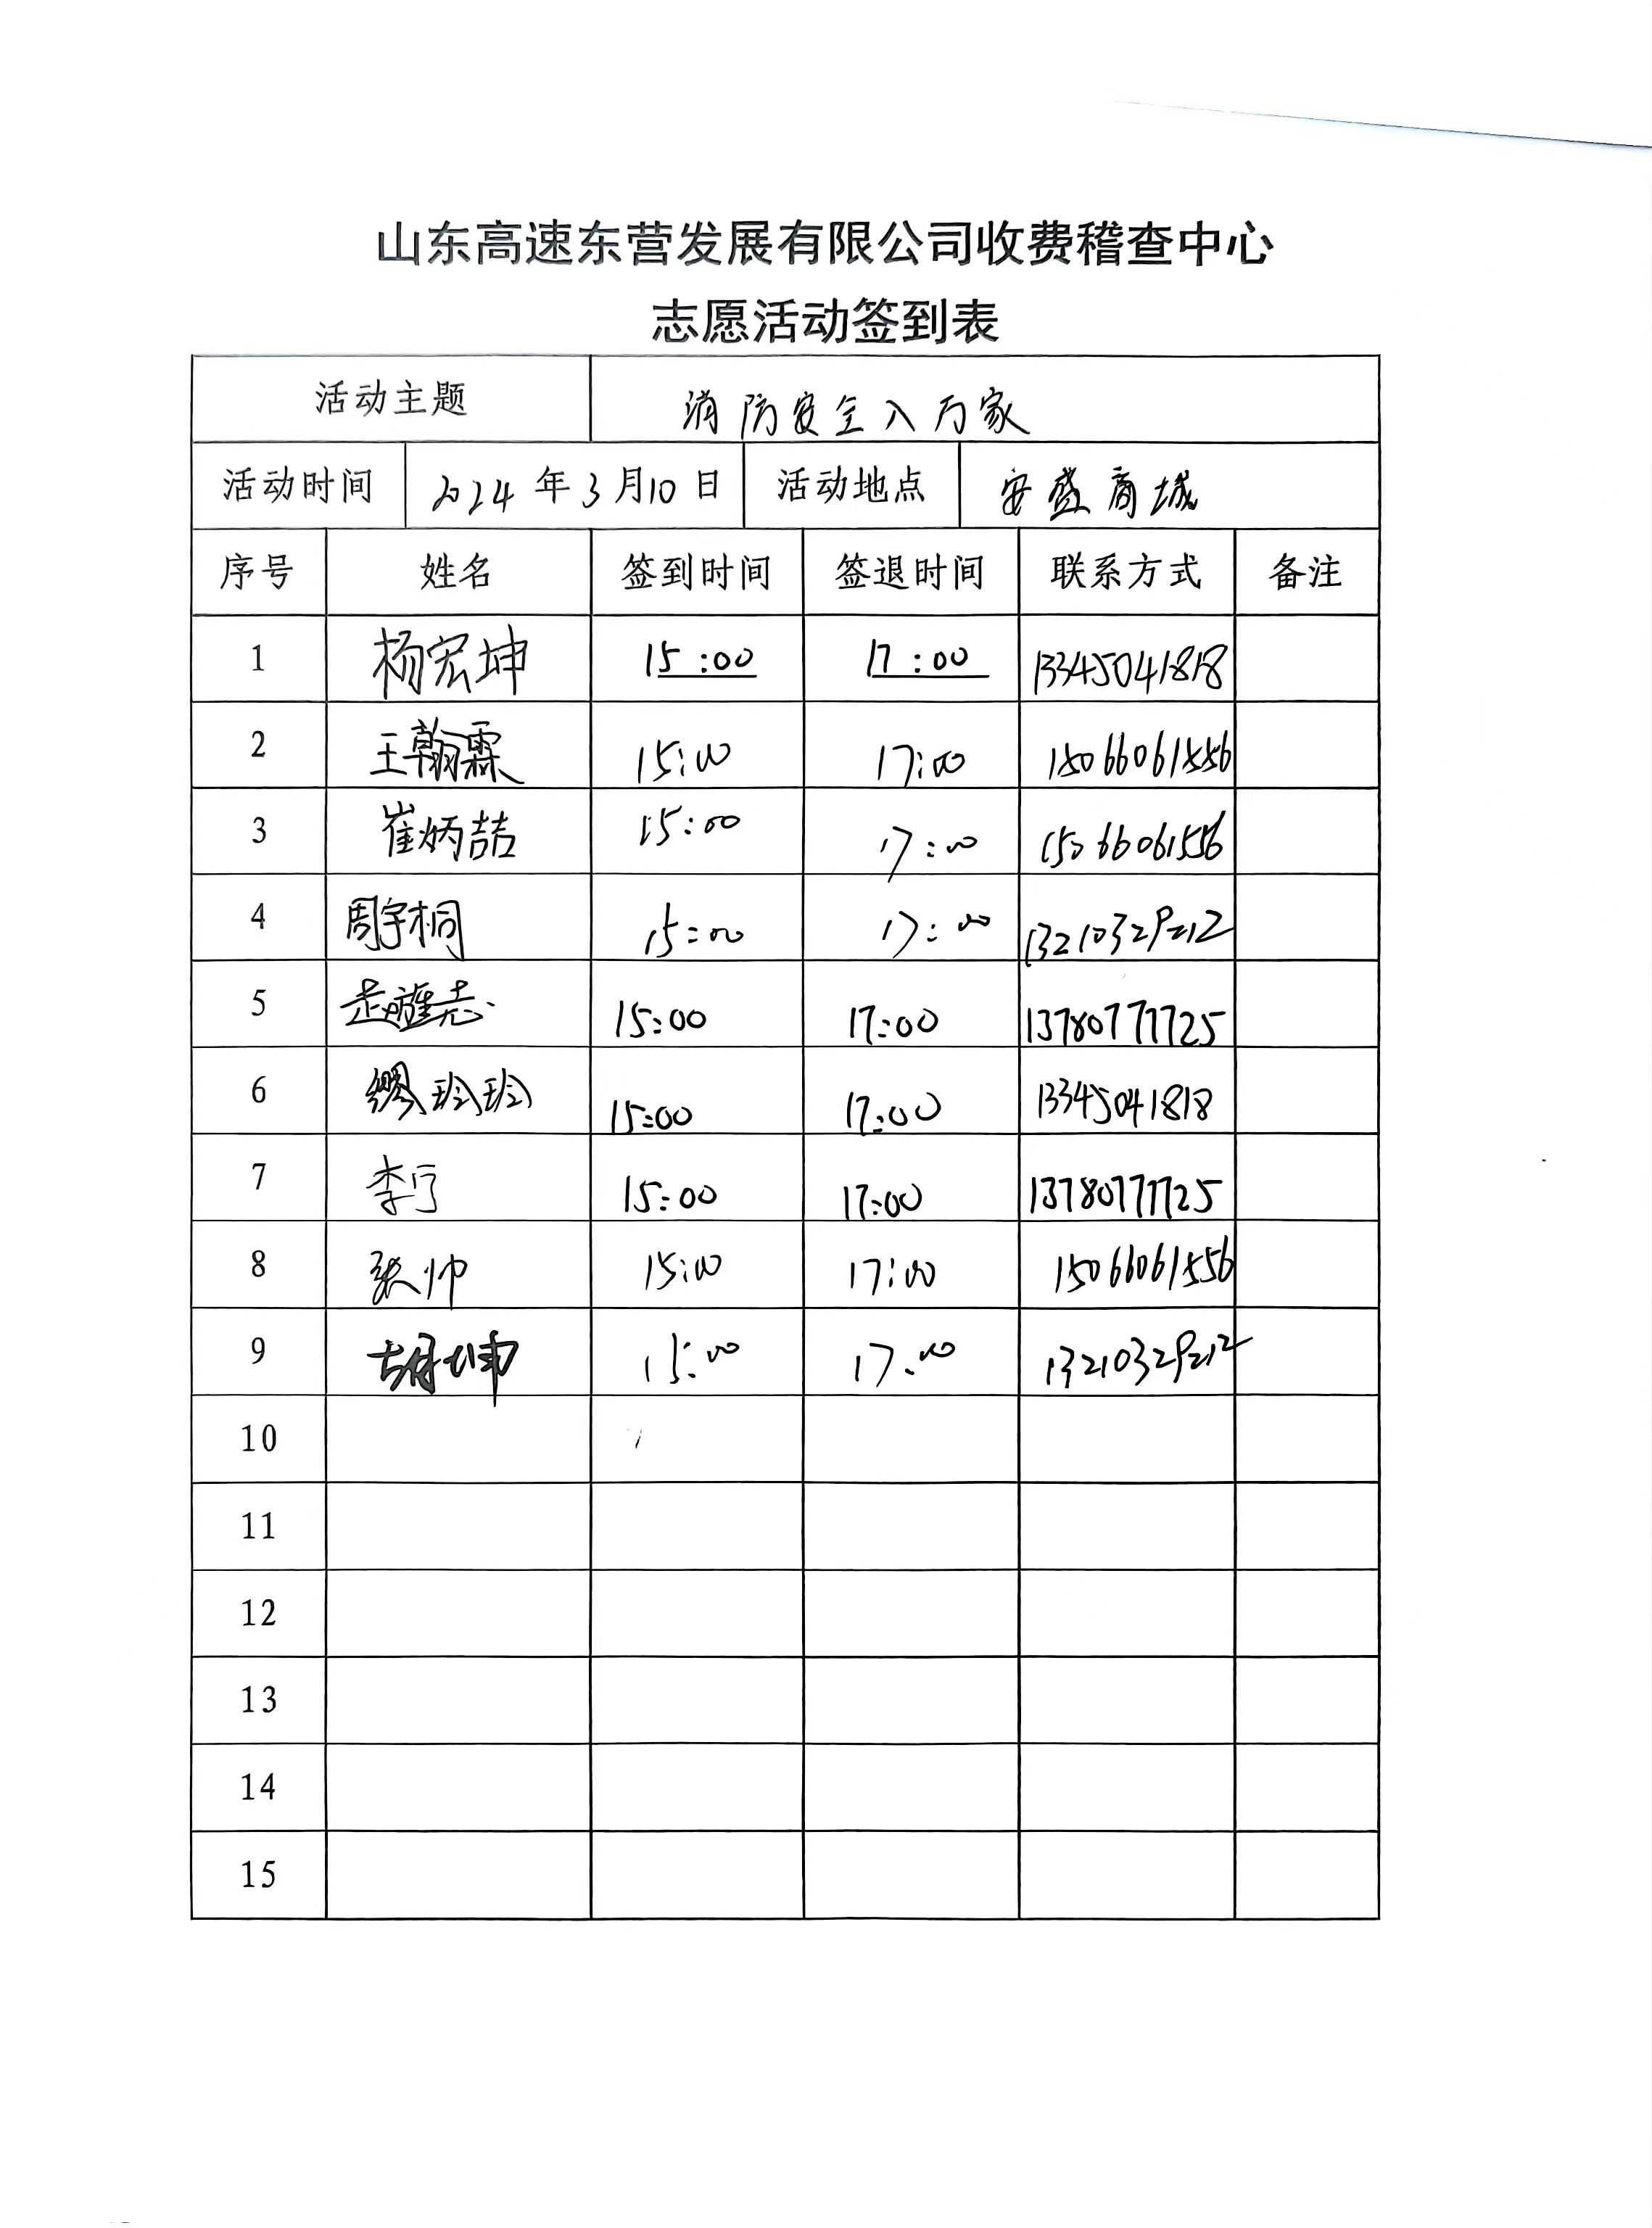 山东高速东营发展有限公司收费稽查中心
志愿活动签到表
活动主题 消防安全入万家
活动时间 2024年3月10日 活动地点 安盛商城
序号 姓名 签到时间 签退时间 联系方式 备注
1 杨宏坤 15:00 17:00 13345041818
2 王翰霖 15:00 17:00 15066061556
3 崔炳喆 15:00 17:00 15066061556
4 周宇桐 15:00 17:00 13210329212
5 15:00 17:00 13780777725
6 缪玲玲 15:00 17:00 13345041818
7 李宁 15:00 17:00 13780777725
8 张帅 15:00 17:00 15066061556
9 胡坤 15:00 17:00 13210329212
10
11
12
13
14
15